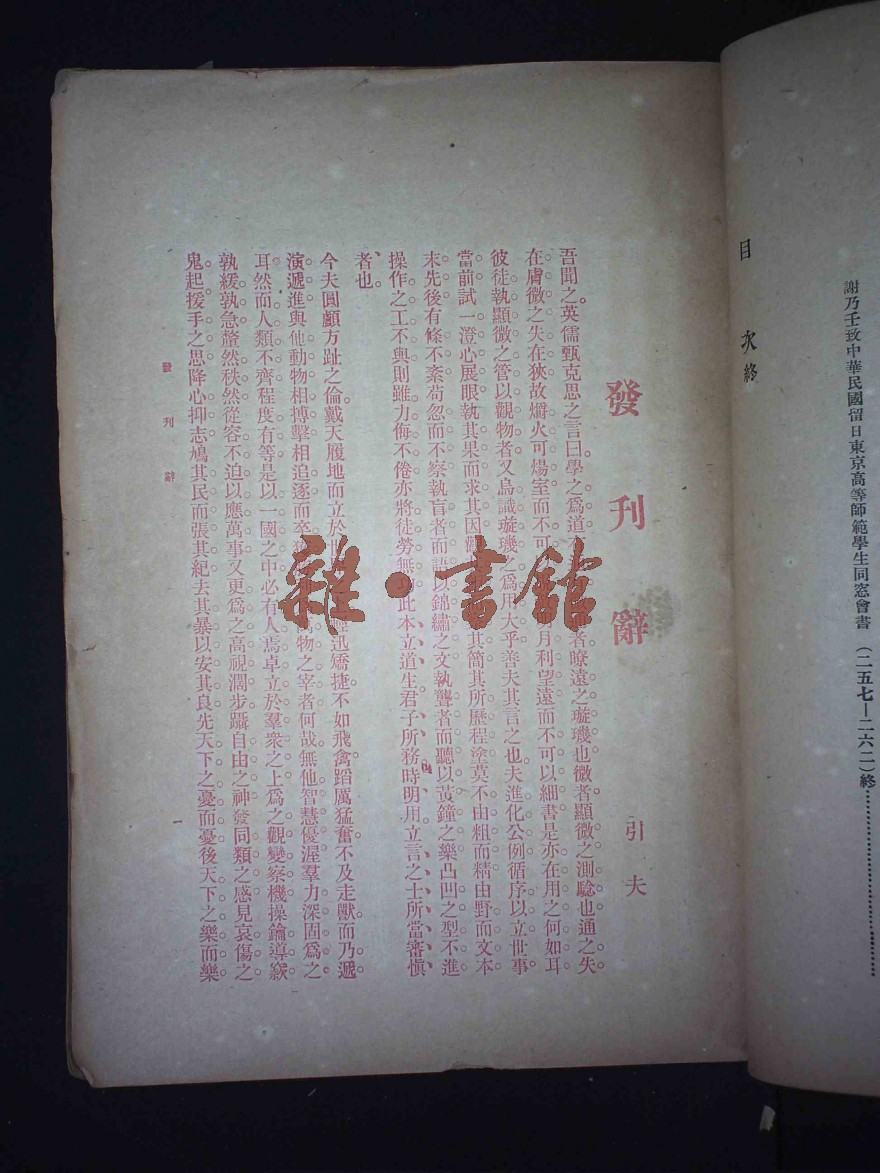 謝乃壬致中華民國留日東京高等師範學生同窓會書 (二五七—二六二)終
目 次 終
發 刊 辭
引 夫
吾聞之英儒甄克思之言曰學之爲道 者瞭遠之璇璣也微者顯微之測驗也通之失
在膚微之失在狹故爝火可煬室而不可 月利望遠而不可以細書是亦在用之何如耳
彼徒執顯微之管以觀物者又烏識璇璣之爲用大乎善夫其言之也夫進化公例循序以立世事
當前試一澄心展眼執其果而求其因 其簡其所歷程塗莫不由粗而精由野而文本
末先後有條不紊苟忽而不察執盲者而語以錦繡之文執聾者而聽以黃鐘之樂凸凹之型不進
操作之工不與則雖力侮不倦亦將徒勞無 此本立道生君子所務時明用立言之士所當審愼
者也
今夫圓顱方趾之倫戴天履地而立於 輕迅矯捷不如飛禽蹈厲猛奮不及走獸而乃遞
演遞進與他動物相搏擊相追逐而卒 萬物之宰者何哉無他智慧優渥羣力深固爲之
耳然而人類不齊程度有等是以一國之中必有人焉卓立於羣衆之上爲之觀變察機操鑰導竅
孰緩孰急釐然秩然從容不迫以應萬事又更爲之高視濶步躡自由之神發同類之感見哀傷之
鬼起援手之思降心抑志鳩其民而張其紀去其暴以安其良先天下之憂而憂後天下之樂而樂
發 刊 辭
一
雜·書館